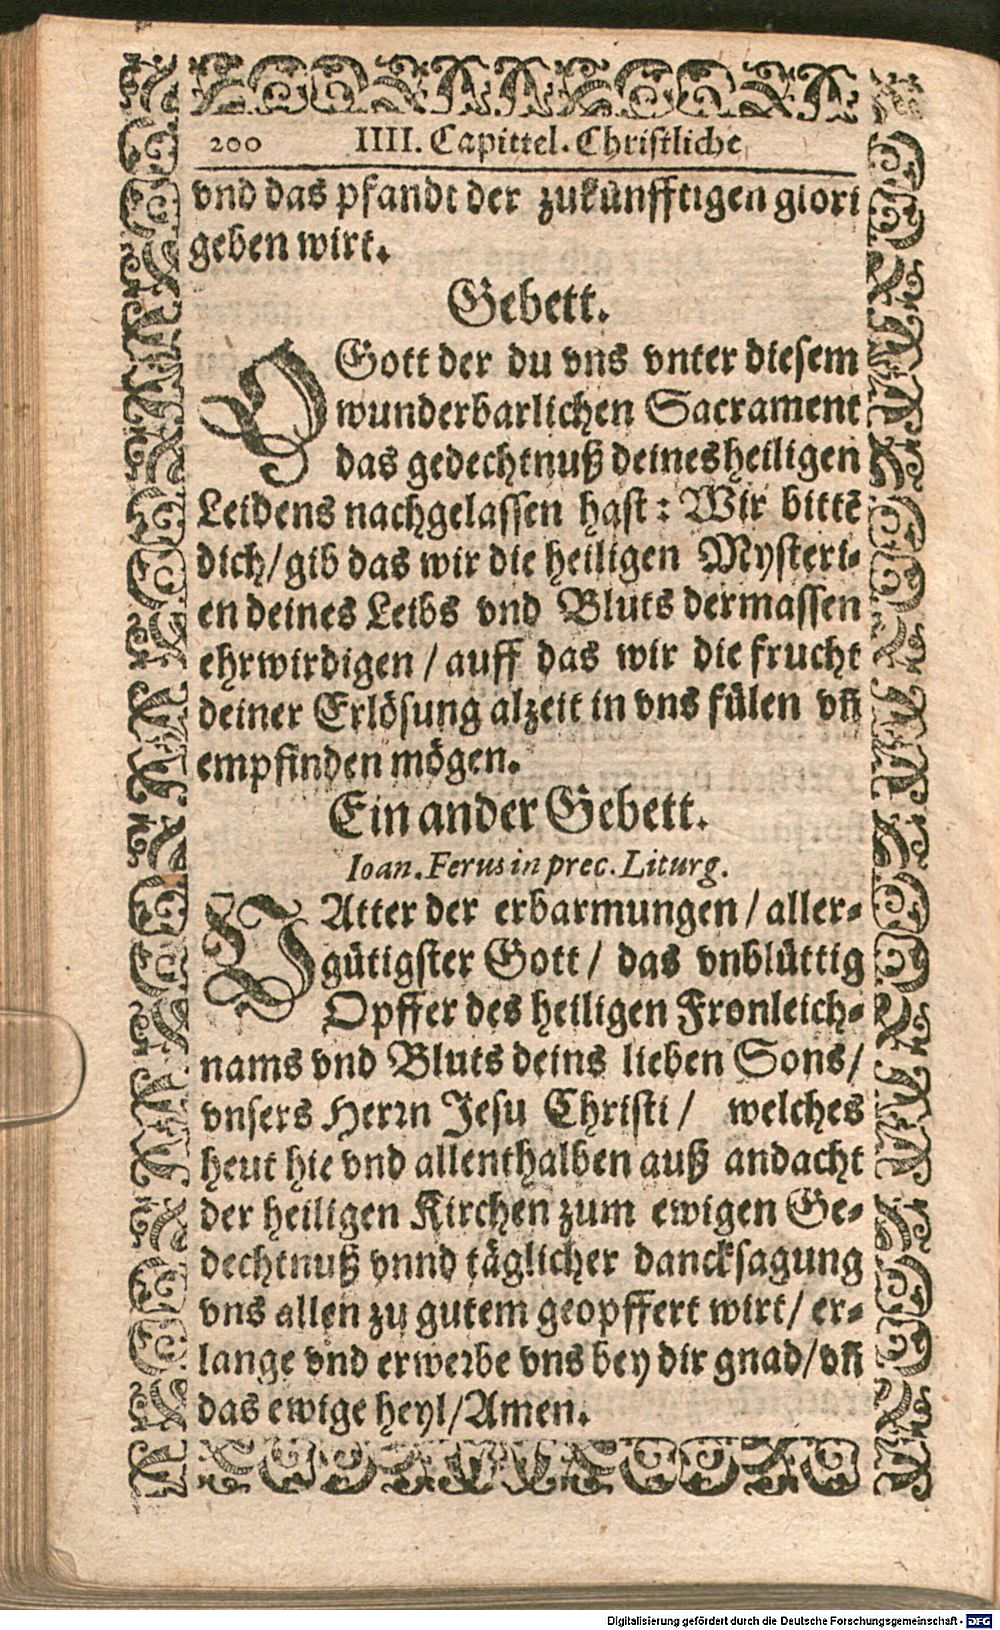 200 IIII. Capittel. Christliche
vnd das pfandt der zukünfftigen glori
geben wirt.
Gebett.
O Gott der du vns vnter diesem
wunderbarlichen Sacrament
das gedechtnuß deines heiligen
Leidens nachgelassen hast: Wir bittē
dich/ gib das wir die heiligen Mysteri-
en deines Leibs vnd Bluts dermassen
ehrwirdigen / auff das wir die frucht
deiner Erlösung alzeit in vns fülen vñ
empfinden mögen.
Ein ander Gebett.
Ioan. Ferus in prec. Liturg.
VAtter der erbarmungen / aller-
gütigster Gott / das vnblüttig
Opffer des heiligen Fronleich-
nams vnd Bluts deins lieben Sons/
vnsers Herrn Jesu Christi / welches
heut hie vnd allenthalben auß andacht
der heiligen Kirchen zum ewigen Ge-
dechtnuß vnnd täglicher dancksagung
vns allen zu gutem geopffert wirt / er-
lange vnd erwerbe vns bey dir gnad/ vñ
das ewige heyl/ Amen.
Digitalisierung gefördert durch die Deutsche Forschungsgemeinschaft - DFG